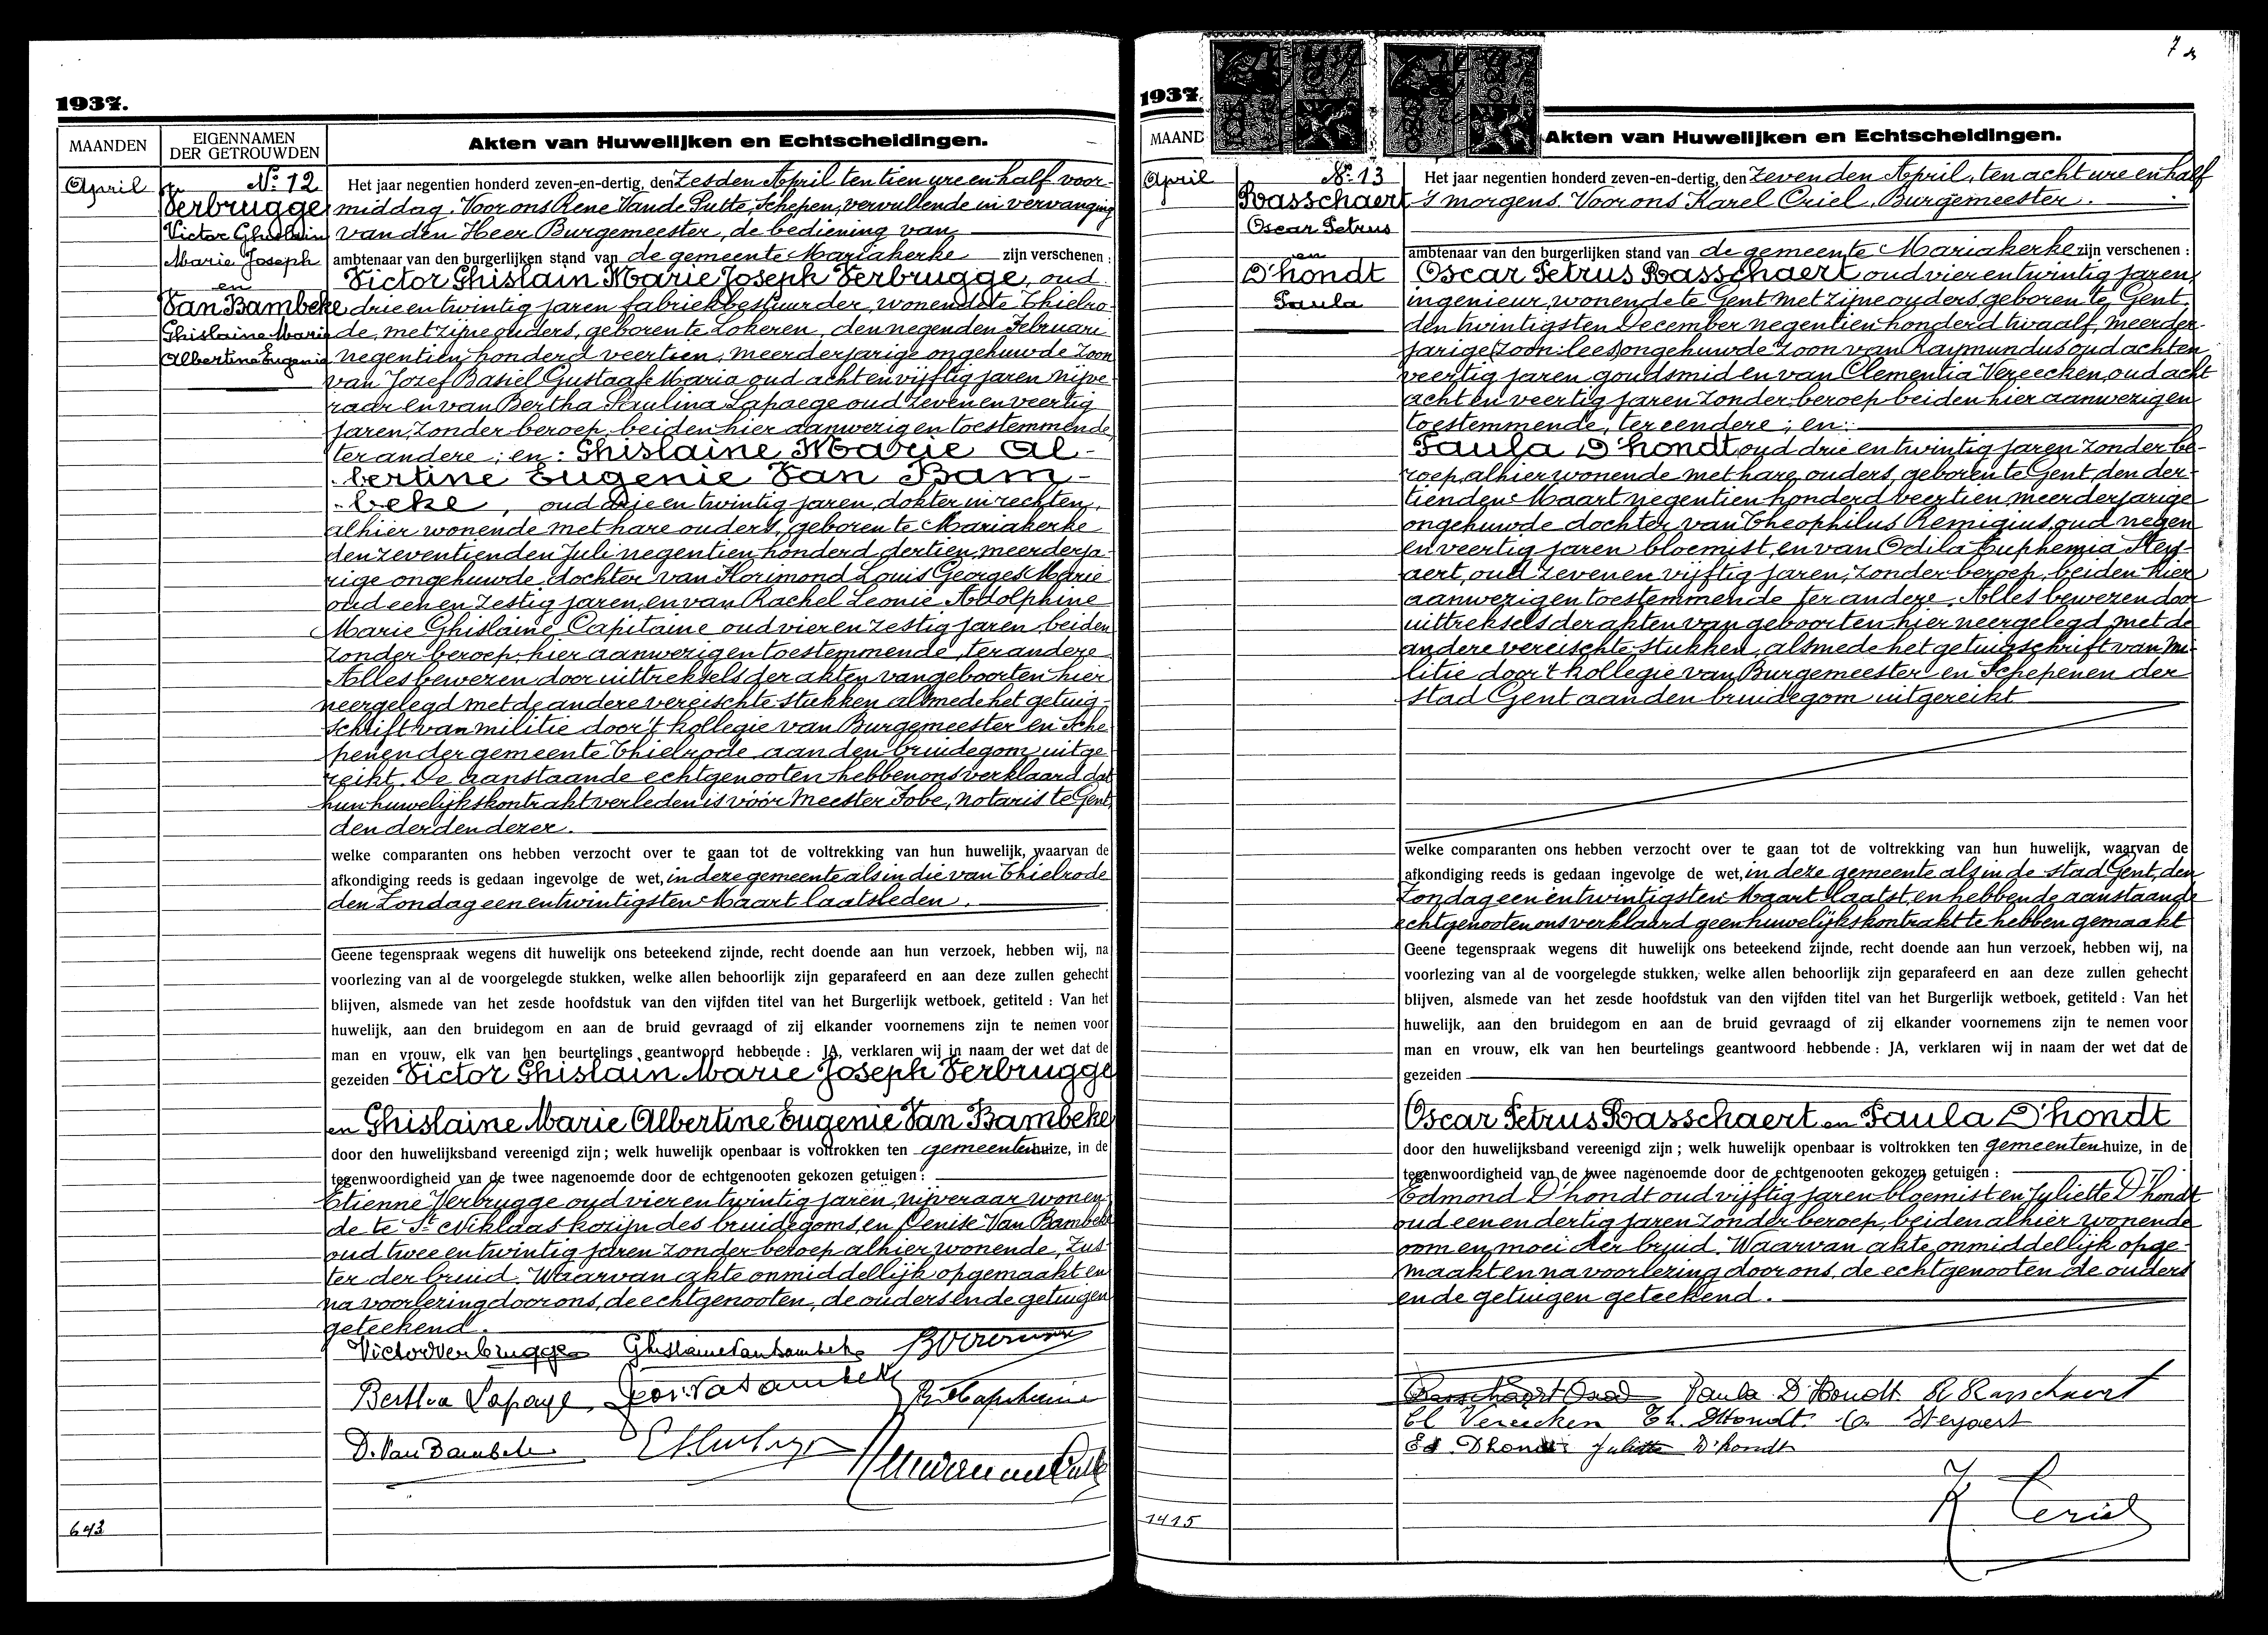 1937.
MAANDEN
EIGENNAMEN
DER GETROUWDEN
Akten van Huwelijken en Echtscheidingen.
April
No. 12
Verbrugge
Victor Ghislain
Marie Joseph
en
Van Bambeke
Ghislaine Marie
Albertine Eugenie
Het jaar negentien honderd zeven-en-dertig, den Zesden April ten tien ure en half voor-
middag. Voor ons René Vande Putte, Schepen, vervullende in vervanging
van den Heer Burgemeester, de bediening van
ambtenaar van den burgerlijken stand van de gemeente Mariakerke zijn verschenen :
Victor Ghislain Marie Joseph Verbrugge, oud
drie en twintig jaren fabriekbestuurder, wonende te Thielro-
de, met zijne ouders, geboren te Lokeren, den negenden Februari
negentien honderd veertien, meerderjarige ongehuwde zoon
van Jozef Basiel Gustaaf Maria oud acht en vijftig jaren nijve-
raar en van Bertha Paulina Lapaege oud zeven en veertig
jaren, zonder beroep, beiden hier aanwezig en toestemmende,
ter andere ; en : Ghislaine Marie Al-
bertine Eugenie Van Bam-
beke, oud drie en twintig jaren, dokter in rechten,
alhier wonende met hare ouders, geboren te Mariakerke
den zeventienden Juli negentien honderd dertien, meerderja-
rige ongehuwde dochter van Florimond Louis Georges Marie
oud een en zestig jaren, en van Rachel Leonie Adolphine
Marie Ghislaine Capitaine oud vier en zestig jaren beiden
zonder beroep, hier aanwezig en toestemmende, ter andere
Alles bewezen door uittreksels der akten van geboorten hier
neergelegd met de andere vereischte stukken alsmede het getuig-
schrift van militie door 't kollegie van Burgemeester en Sche-
penen der gemeente Thielrode aan den bruidegom uitge-
reikt. De aanstaande echtgenooten hebben ons verklaard dat
hun huwelijkskontrakt verleden is vóór Meester Fobe, notaris te Gent,
den derden dezer.
welke comparanten ons hebben verzocht over te gaan tot de voltrekking van hun huwelijk, waarvan de
afkondiging reeds is gedaan ingevolge de wet, in deze gemeente als in die van Thielrode
den Zondag een en twintigsten Maart laatsleden.
Geene tegenspraak wegens dit huwelijk ons beteekend zijnde, recht doende aan hun verzoek, hebben wij, na
voorlezing van al de voorgelegde stukken, welke allen behoorlijk zijn geparafeerd en aan deze zullen gehecht
blijven, alsmede van het zesde hoofdstuk van den vijfden titel van het Burgerlijk wetboek, getiteld : Van het
huwelijk, aan den bruidegom en aan de bruid gevraagd of zij elkander voornemens zijn te nemen voor
man en vrouw, elk van hen beurtelings geantwoord hebbende : JA, verklaren wij in naam der wet dat de
gezeiden Victor Ghislain Marie Joseph Verbrugge
en Ghislaine Marie Albertine Eugenie Van Bambeke
door den huwelijksband vereenigd zijn ; welk huwelijk openbaar is voltrokken ten gemeentenhuize, in de
tegenwoordigheid van de twee nagenoemde door de echtgenooten gekozen getuigen :
Etienne Verbrugge oud vier en twintig jaren, nijveraar wonen-
de te St. Niklaas kozijn des bruidegoms, en Denise Van Bambeke
oud twee en twintig jaren zonder beroep alhier wonende, zus-
ter der bruid. Waarvan akte onmiddellijk opgemaakt en
na voorlezing door ons, de echtgenooten, de ouders en de getuigen
geteekend.
Victor Verbrugge Ghislaine Van Bambeke
Bertha Lapaege
D. Van Bambeke
643
7
1937
MAAND
Akten van Huwelijken en Echtscheidingen.
April
No. 13
Rasschaert
Oscar Petrus
en
D'hondt
Paula
Het jaar negentien honderd zeven-en-dertig, den Zevenden April, ten acht ure en half
's morgens. Voor ons Karel Criel, Burgemeester.
ambtenaar van den burgerlijken stand van de gemeente Mariakerke zijn verschenen :
Oscar Petrus Rasschaert oud vier en twintig jaren,
ingenieur, wonende te Gent met zijne ouders, geboren te Gent,
den twintigsten December negentien honderd twaalf, meerder-
jarige (zoon : lees) ongehuwde zoon van Raymundus oud acht en
veertig jaren goudsmid en van Clementia Vereecken, oud acht
acht en veertig jaren zonder beroep beiden hier aanwezig en
toestemmende, ter eendere ; en :
Paula D'hondt, oud drie en twintig jaren zonder be-
roep, alhier wonende met hare ouders, geboren te Gent, den der-
tienden Maart negentien honderd veertien, meerderjarige
ongehuwde dochter van Theophilus Remigius, oud negen
en veertig jaren bloemist, en van Odila Euphemia Stey-
aert, oud zeven en vijftig jaren, zonder beroep, beiden hier
aanwezig en toestemmende ter andere. Alles bewezen door
uittreksels der akten van geboorten, hier neergelegd met de
andere vereischte stukken, alsmede het getuigschrift van mi-
litie door 't kollegie van Burgemeester en Schepenen der
stad Gent aan den bruidegom uitgereikt
welke comparanten ons hebben verzocht over te gaan tot de voltrekking van hun huwelijk, waarvan de
afkondiging reeds is gedaan ingevolge de wet, in deze gemeente als in de stad Gent, den
Zondag een en twintigsten Maart laatst, en hebben de aanstaande
echtgenooten ons verklaard geen huwelijkskontrakt te hebben gemaakt
Geene tegenspraak wegens dit huwelijk ons beteekend zijnde, recht doende aan hun verzoek, hebben wij, na
voorlezing van al de voorgelegde stukken, welke allen behoorlijk zijn geparafeerd en aan deze zullen gehecht
blijven, alsmede van het zesde hoofdstuk van den vijfden titel van het Burgerlijk wetboek, getiteld : Van het
huwelijk, aan den bruidegom en aan de bruid gevraagd of zij elkander voornemens zijn te nemen voor
man en vrouw, elk van hen beurtelings geantwoord hebbende : JA, verklaren wij in naam der wet dat de
gezeiden
Oscar Petrus Rasschaert en Paula D'hondt
door den huwelijksband vereenigd zijn ; welk huwelijk openbaar is voltrokken ten gemeentenhuize, in de
tegenwoordigheid van de twee nagenoemde door de echtgenooten gekozen getuigen :
Edmond D'hondt oud vijftig jaren bloemist en Juliette D'hondt
oud een en dertig jaren zonder beroep, beiden alhier wonende
oom en moei der bruid. Waarvan akte onmiddellijk opge-
maakt en na voorlezing door ons, de echtgenooten de ouders
en de getuigen geteekend.
Paula D'Hondt R Rasschaert
Cl Vereecken Th. DHondt. Steyaert
Ed Dhondt Juliette D'hondt
K Criel
1415